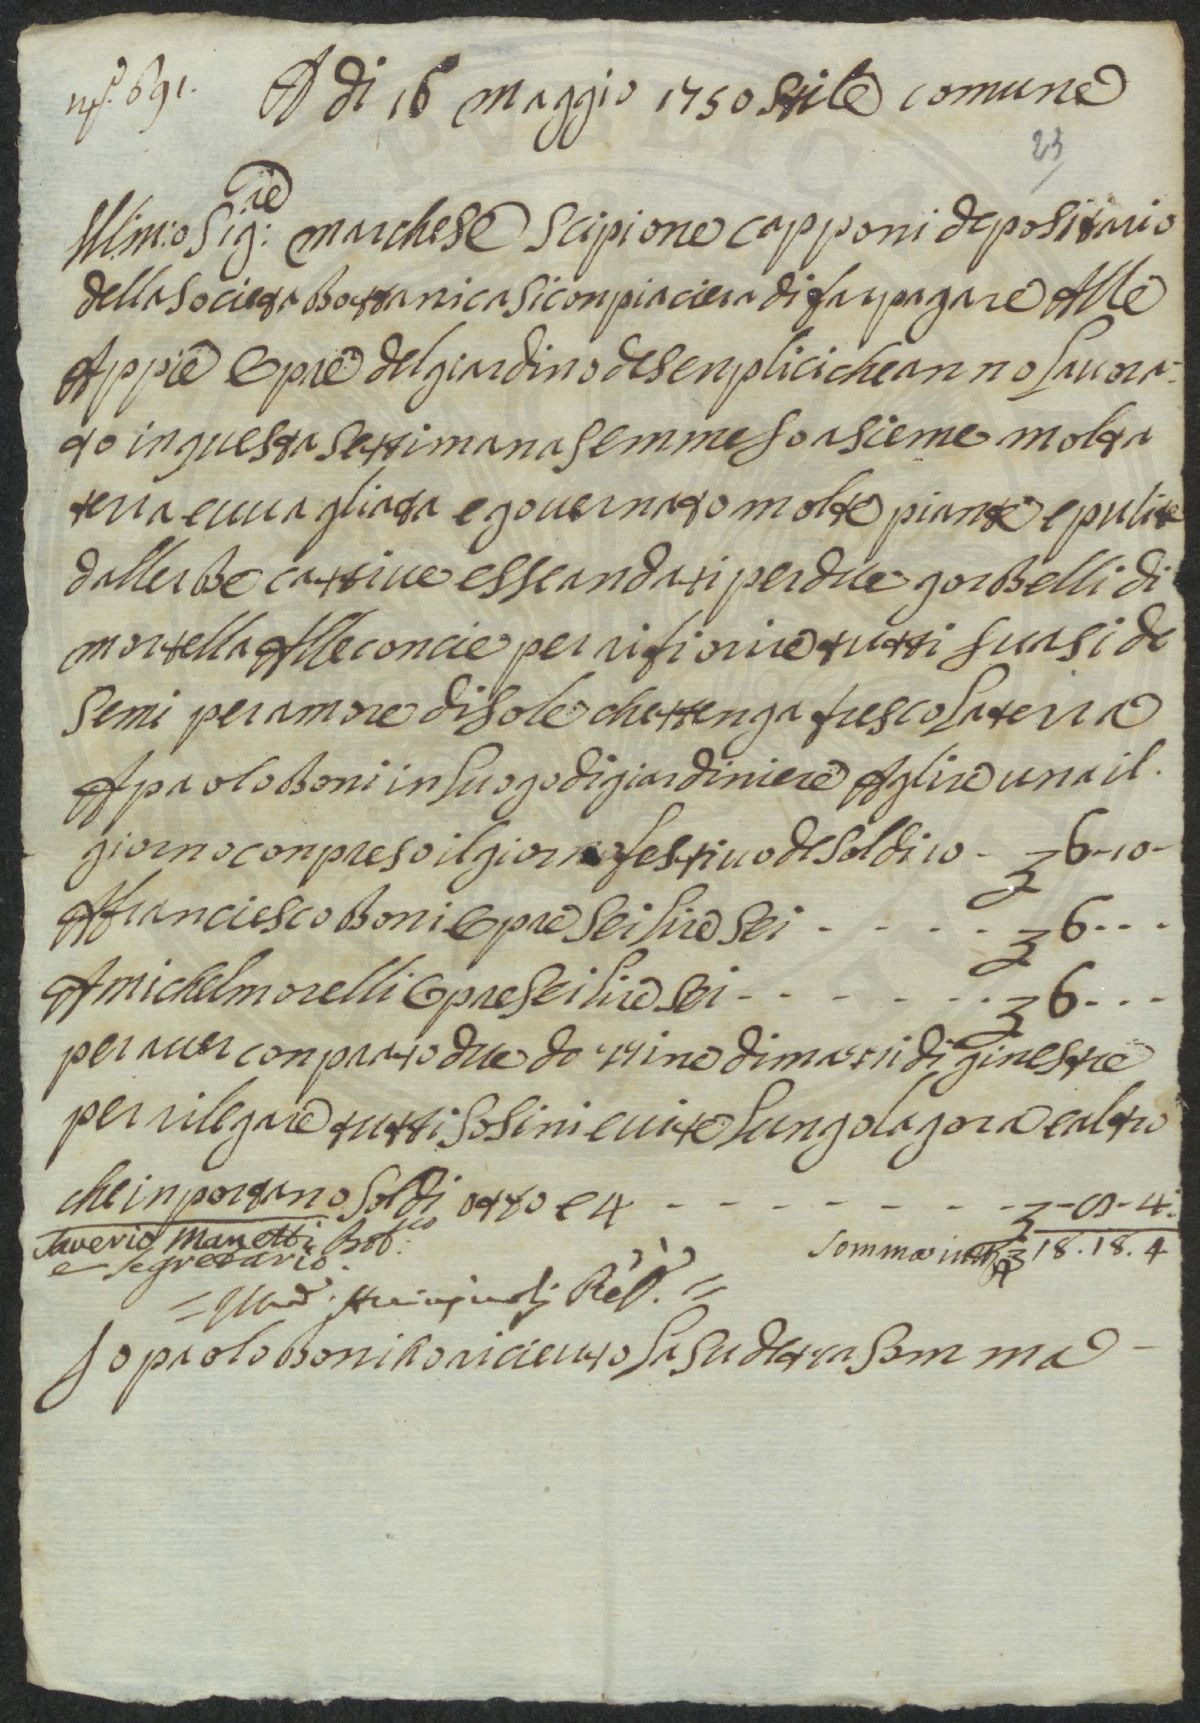 N.º 691. A di 16 maggio 1750 stile comune
23
Illm:o Sig:re marchese Scipione capponi depositario
della societa Bottanica si conpiaciera di far pagare Alle
Appie Opre del giardino de senplici che anno Lavora-
to in questa settimana Semmesso asieme molta
terra e vvagliata e governato molte piante e pulite
dallerbe cattive esse andati per due gorbelli di
mortella Alle concie per rifiorire tutti Suasi de
Semi per amore di sole che ttenga fresco La terra
A paolo Boni in Luogo di giardiniere A lire una il
giorno conpreso il giorno festivo de soldi 10 - £ 6-10-
A franciesco Boni Opre sei lire sei - - - - £ 6 - - -
A michel morelli Opre sei lire sei - - - - - - £ 6 - - -
per aver conprato due dozzine di mazzi di ginestre
per rilegare tutti Sosini e vite Lungo la gora e altro
che inportano Soldi otto e 4 - - - - - - - - £ -8-4:
Saverio Manetti Bot:co
e Segretario.
Somma in tutto £ 18.18.4
Io paolo Boni ho ricievuto La sudetta somma -